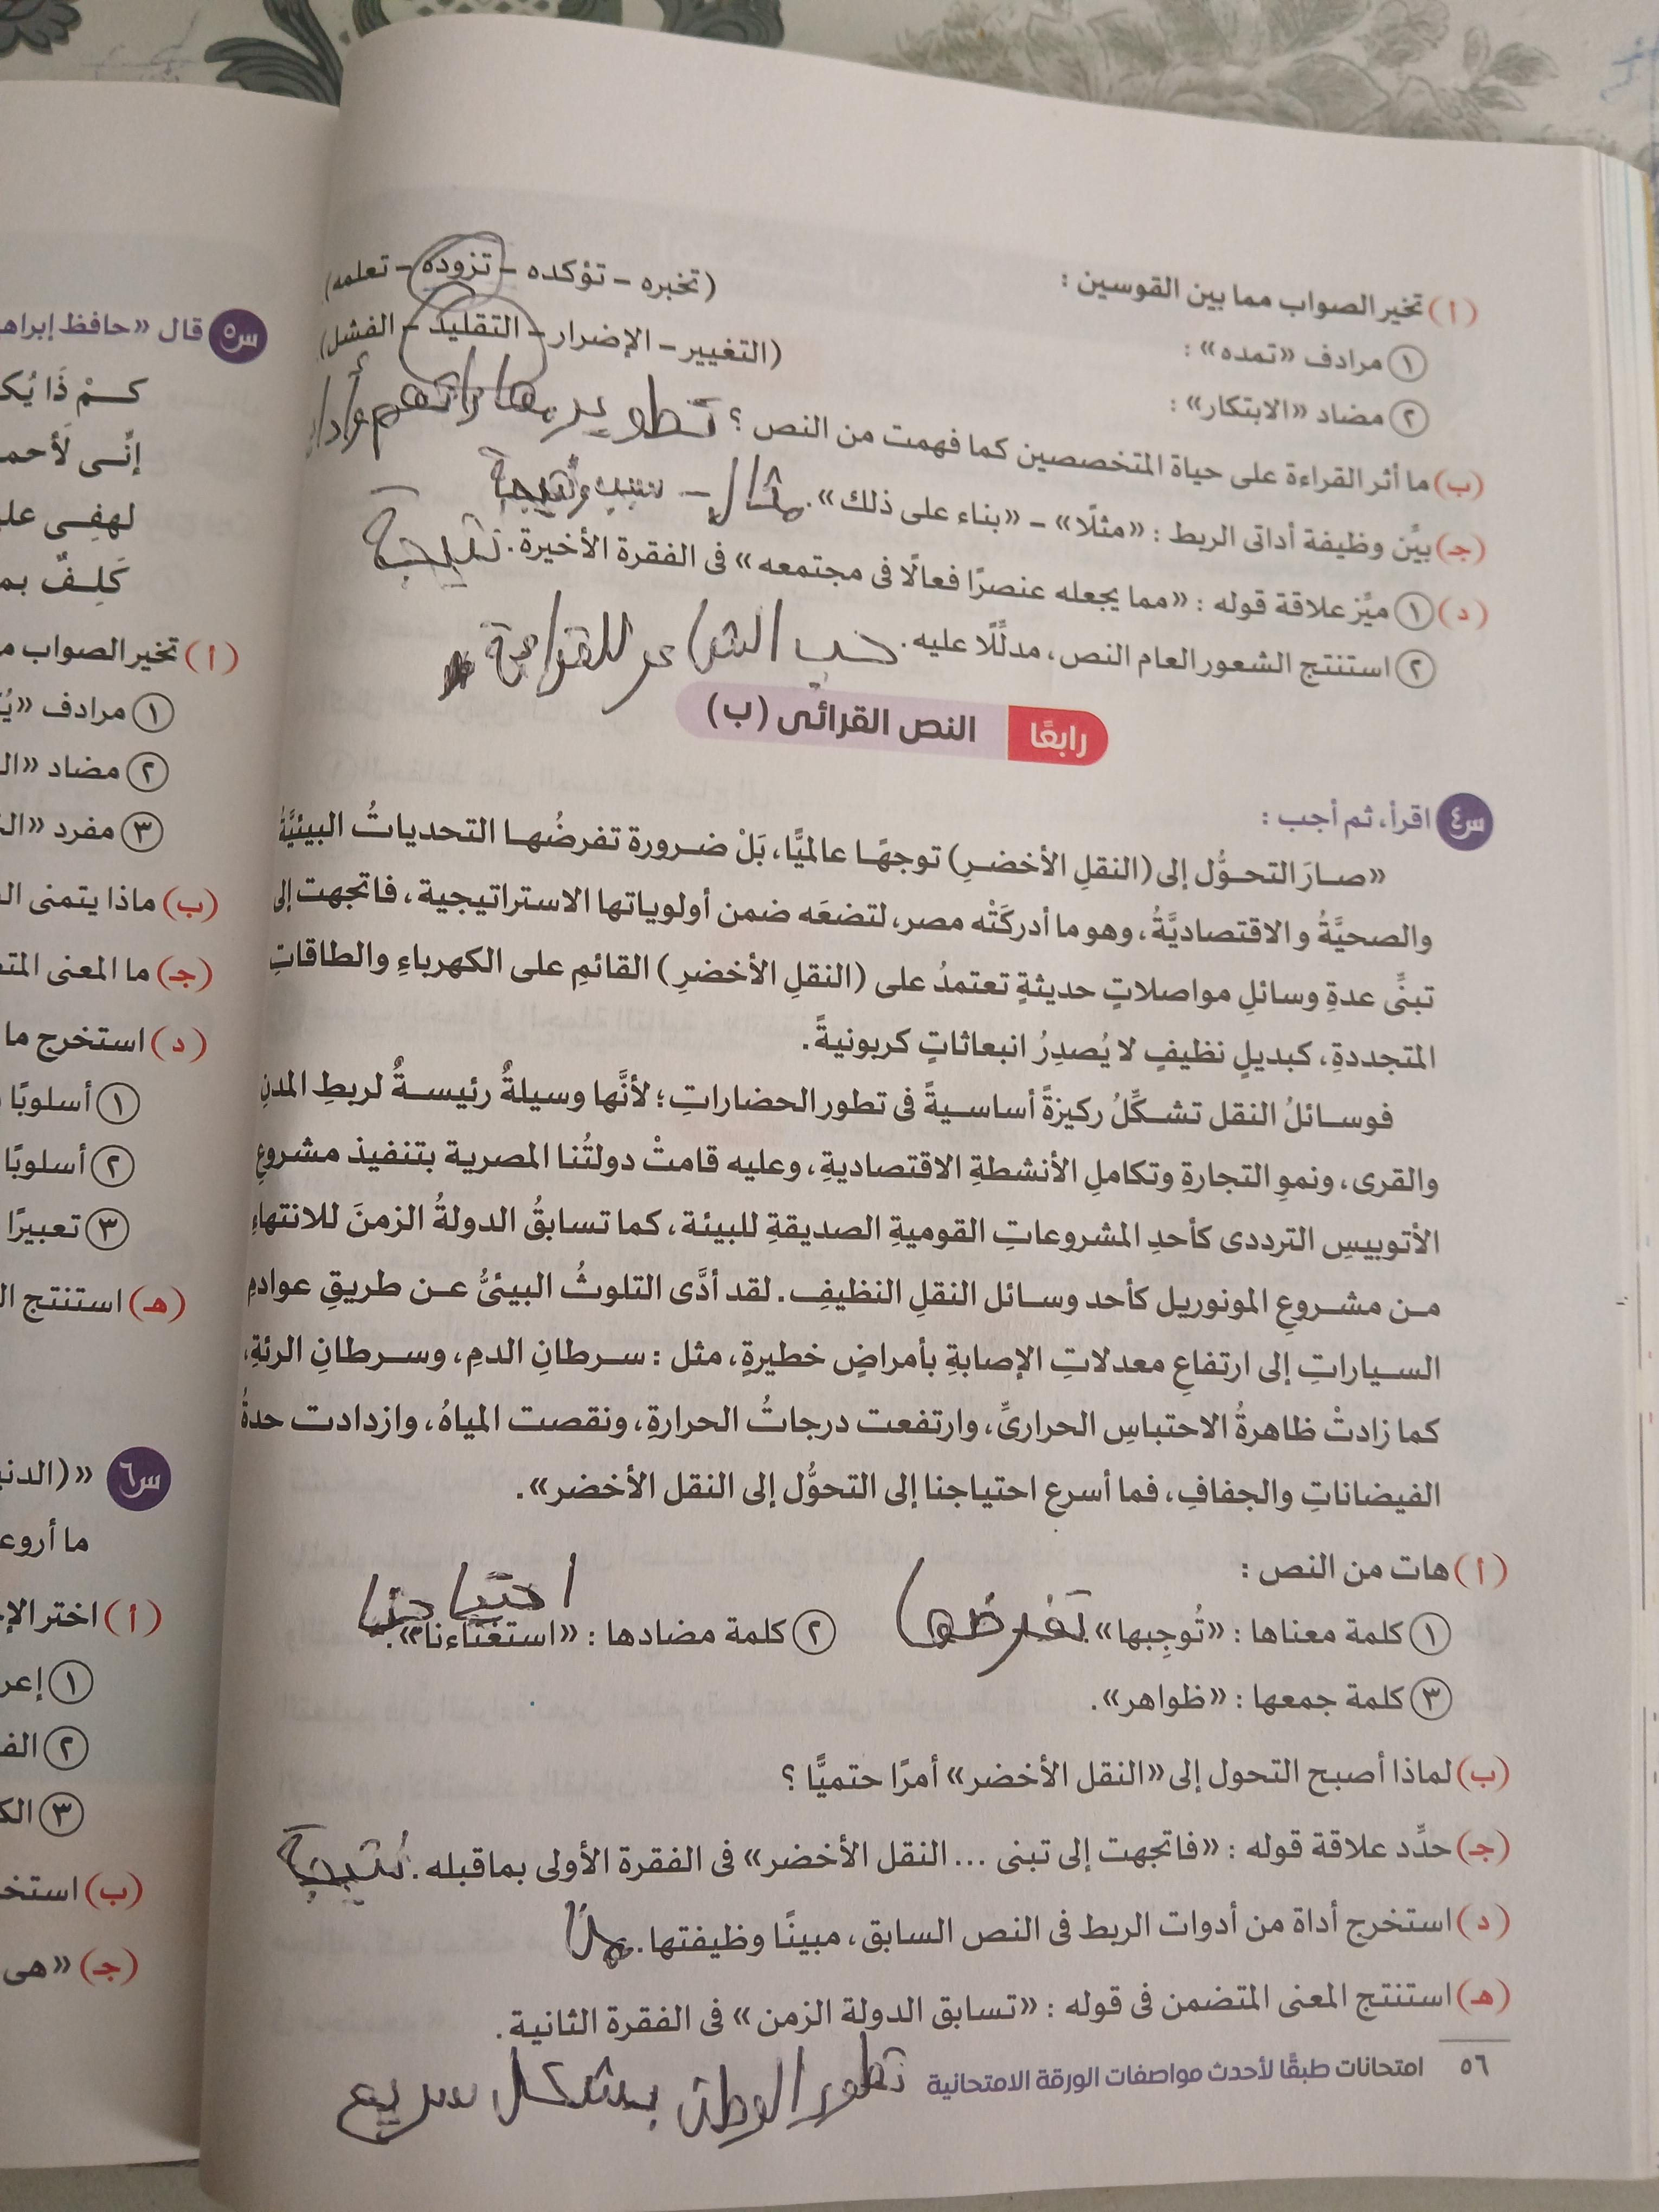 (أ) تخير الصواب مما بين القوسين :
١ مرادف «تمده» : (تخبره – تؤكده – تزوده – تعلمه)
٢ مضاد «الابتكار» : (التغيير – الإضرار – التقليد – الفشل)
(ب) ما أثر القراءة على حياة المتخصصين كما فهمت من النص ؟ تطوير مهاراتهم
(جـ) بيِّن وظيفة أداتى الربط : «مثلًا» – «بناء على ذلك». مثال – سبب ونتيجة
(د) ١ ميِّز علاقة قوله : «مما يجعله عنصرًا فعالًا فى مجتمعه» فى الفقرة الأخيرة. نتيجة
٢ استنتج الشعور العام النص، مدلِّلًا عليه. حب الشاعر للقراءة
رابعًا النص القرائى (ب)
س٤ اقرأ، ثم أجب :
«صارَ التحوُّل إلى (النقلِ الأخضرِ) توجهًا عالميًّا، بَلْ ضرورة تفرضُها التحدياتُ البيئيَّةُ
والصحيَّةُ والاقتصاديَّةُ، وهو ما أدركَتْه مصر، لتضعَه ضمن أولوياتها الاستراتيجية، فاتجهت إلى
تبنِّى عدةِ وسائلِ مواصلاتٍ حديثةٍ تعتمدُ على (النقلِ الأخضرِ) القائمِ على الكهرباءِ والطاقاتِ
المتجددةِ، كبديلٍ نظيفٍ لا يُصدِرُ انبعاثاتٍ كربونيةً.
فوسائلُ النقل تشكِّلُ ركيزةً أساسيةً فى تطور الحضاراتِ؛ لأنَّها وسيلةٌ رئيسةٌ لربطِ المدنِ
والقرى، ونموِ التجارةِ وتكاملِ الأنشطةِ الاقتصاديةِ، وعليه قامتْ دولتُنا المصرية بتنفيذ مشروعِ
الأتوبيسِ الترددى كأحدِ المشروعاتِ القوميةِ الصديقةِ للبيئة، كما تسابقُ الدولةُ الزمنَ للانتهاءِ
من مشروعِ المونوريل كأحد وسائل النقلِ النظيفِ. لقد أدَّى التلوثُ البيئىُّ عن طريقِ عوادمِ
السياراتِ إلى ارتفاعِ معدلاتِ الإصابةِ بأمراضٍ خطيرةٍ، مثل : سرطانِ الدمِ، وسرطانِ الرئةِ،
كما زادتْ ظاهرةُ الاحتباسِ الحرارىِّ، وارتفعت درجاتُ الحرارةِ، ونقصت المياهُ، وازدادت حدةُ
الفيضاناتِ والجفافِ، فما أسرع احتياجنا إلى التحوُّل إلى النقل الأخضر».
(أ) هات من النص :
١ كلمة معناها : «تُوجِبها». تفرضها ٢ كلمة مضادها : «استغناءنا». احتياجنا
٣ كلمة جمعها : «ظواهر».
(ب) لماذا أصبح التحول إلى «النقل الأخضر» أمرًا حتميًّا ؟
(جـ) حدِّد علاقة قوله : «فاتجهت إلى تبنى ... النقل الأخضر» فى الفقرة الأولى بماقبله. نتيجة
(د) استخرج أداة من أدوات الربط فى النص السابق، مبينًا وظيفتها.
(هـ) استنتج المعنى المتضمن فى قوله : «تسابق الدولة الزمن» فى الفقرة الثانية.
تطور الوطن بشكل سريع
٥٦ امتحانات طبقًا لأحدث مواصفات الورقة الامتحانية
س٥ قال «حافظ
كمْ ذَا
إنِّى
لهفِى
كَلِفٌ
(أ) تخير الصواب
١ مرادف
٢ مضاد
٣ مفرد
(ب) ماذا يتمنى
(جـ) ما المعنى
(د) استخرج ما
١ أسلوبًا
٢ أسلوبًا
٣ تعبيرًا
(هـ) استنتج
س٦
ما
(أ) اختر
١
٢
٣
(ب)
(جـ) «هى